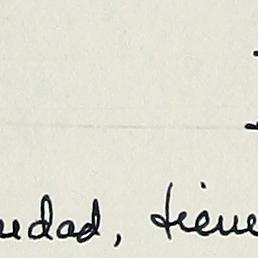 uedad, tiene